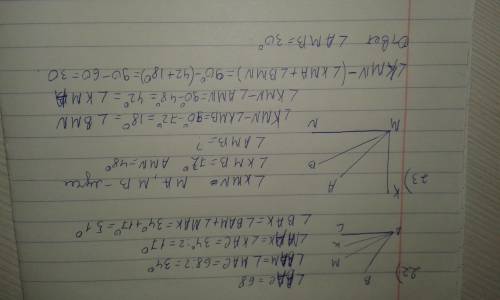 22)
∠BAC = 68
∠BAM = ∠MAC = 68:2 = 34°
∠MAK = ∠KAC = 34°:2 = 17°
∠BAK = ∠BAM + ∠MAK = 34° + 17° = 51°
B
M
K
C
23)
∠KMN MA, MB - лучи
∠KMB = 72° AMN = 48°
∠AMB = ?
∠KMN - ∠KMB = 90° - 72° = 18° = ∠BMN
∠KMN - ∠AMN = 90 - 48° = 42° = ∠KMA
∠KMN - (∠KMA + ∠BMN) = 90° - (42 + 18°) = 90 - 60 = 30
Ответ ∠AMB = 30°
K
A
B
M
N